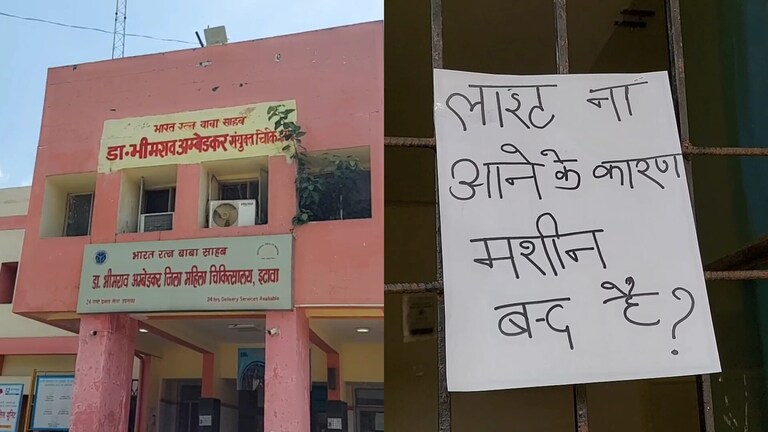 भारत रत्न बाबा साहब
डा॰भीमराव अम्बेडकर संयुक्त चिकि
भारत रत्न बाबा साहब
डॉ. भीमराव अम्बेडकर जिला महिला चिकित्सालय, इटावा
24 hrs Delivery Services Available
लाइट ना
आने के कारण
मशीन
बन्द है?